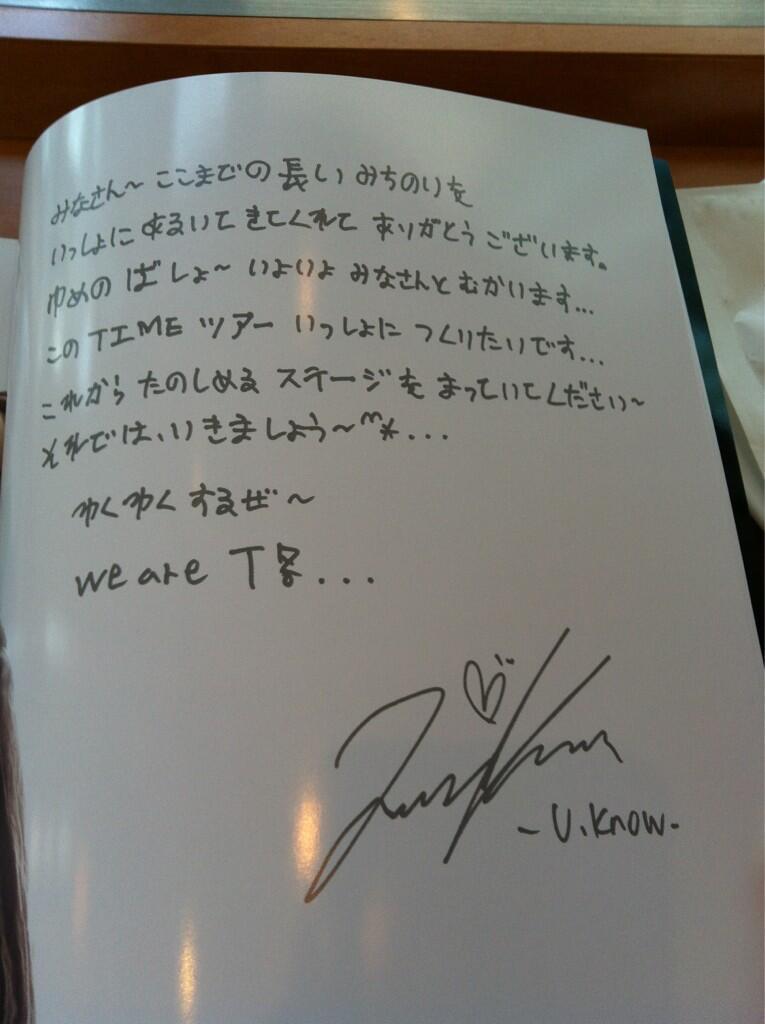 みなさん〜 ここまでの長い みちのりを
いっしょに あるいて きてくれて ありがとう ございます。
ゆめの ばしょ〜 いよいよ みなさんと むかいます...
この TIME ツアー いっしょに つくりたいです...
これから たのしめる ステージを まっていてください〜
それでは、いきましょう〜^^*...
わくわく するぜ〜
we are T
- U.Know -